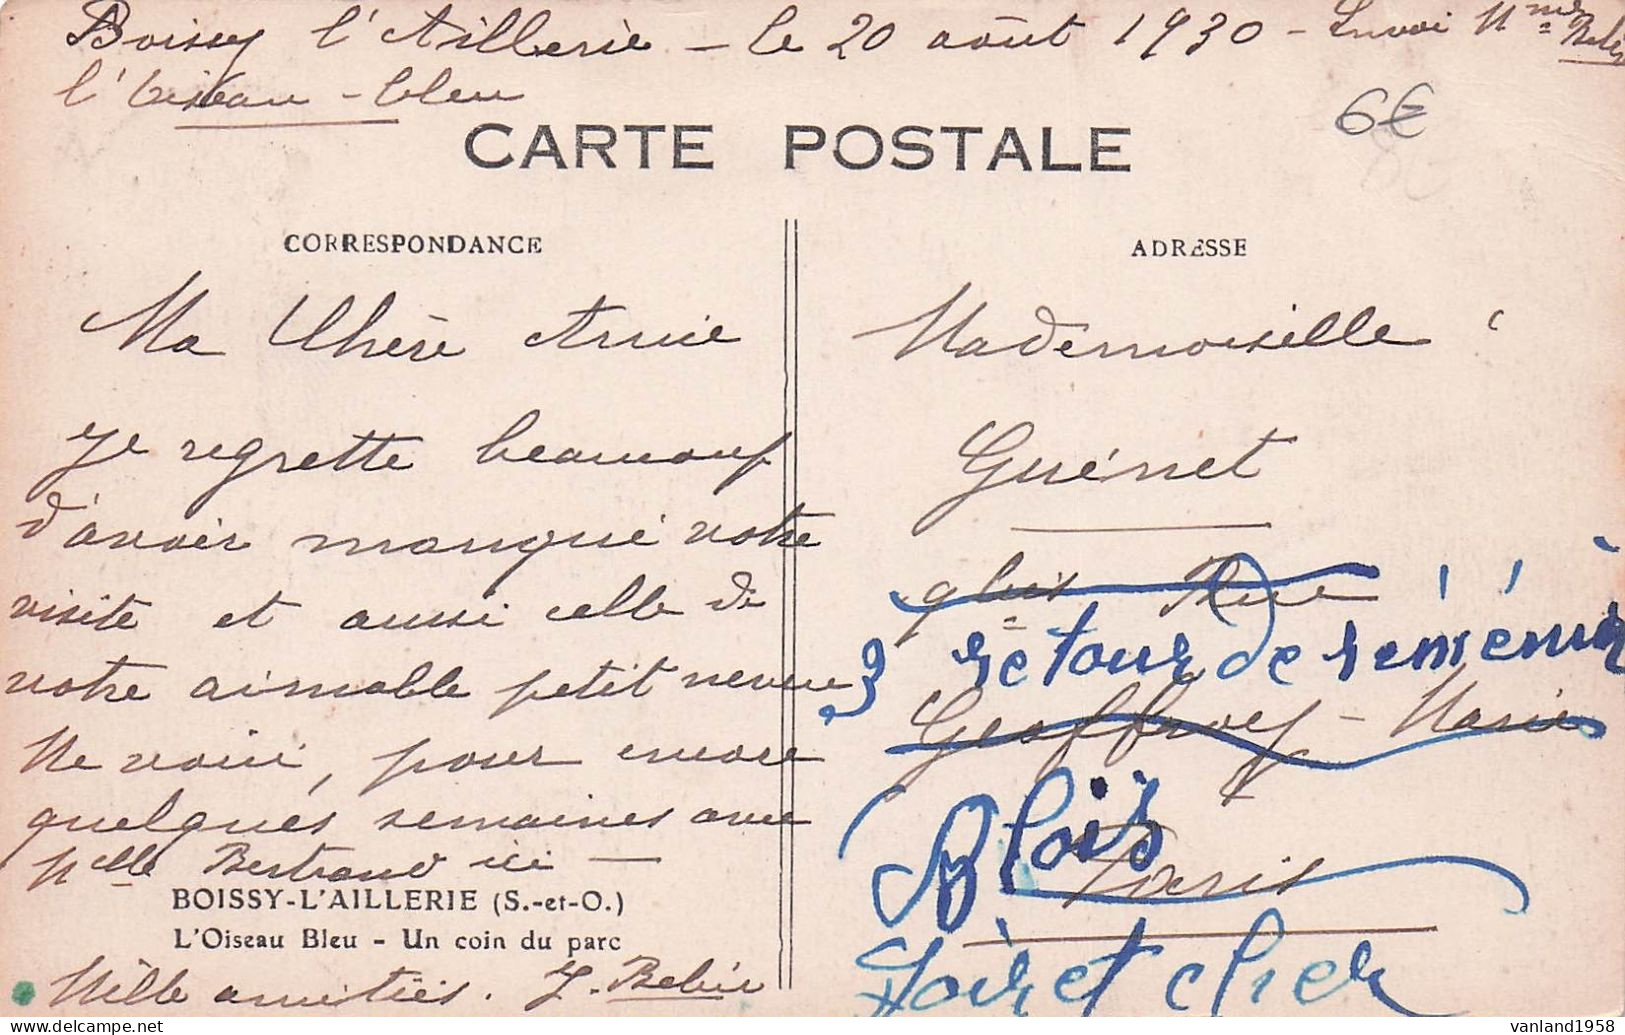 Boissy l'Aillerie - le 20 août 1930 - Envoi Mme
l'Oiseau - bleu
6€
CARTE POSTALE
CORRESPONDANCE
Ma Chère Amie
Je regrette beaucoup
d'avoir manqué votre
visite et aussi celle de
votre aimable petit neveu
Me voici, pour encore
quelqués semaines avec
Melle Bertrand ici —
BOISSY-L'AILLERIE (S.-et-O.)
L'Oiseau Bleu - Un coin du parc
Mille amitiés.
ADRESSE
Mademoiselle
Guénet
Rue
3 retour de
Geoffroy - Marie
Blois
Paris
Loir et cher
vanland1958